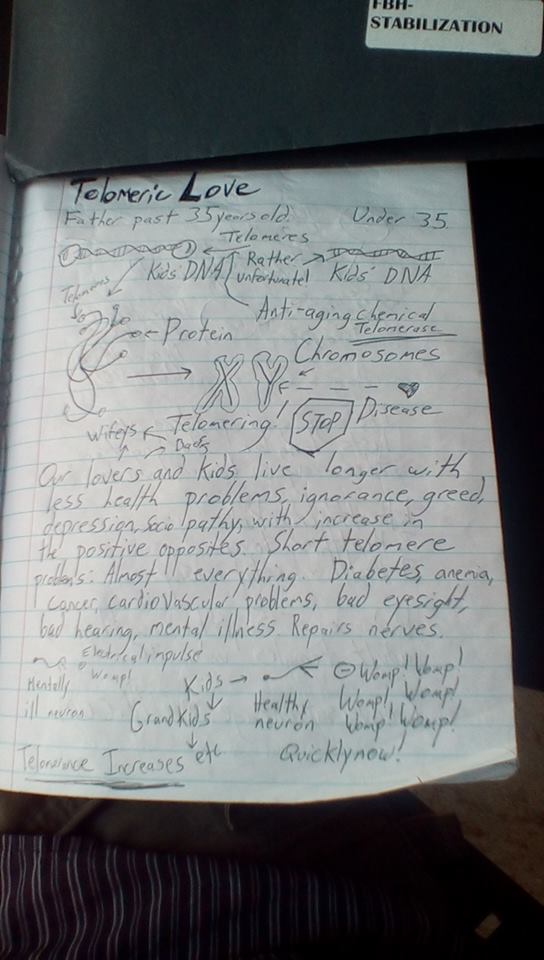 FBH-
STABILIZATION
Telomeric Love
Father past 35 years old. Under 35
Telomeres
Kids' DNA Rather unfortunate! Kids' DNA
Telomeres
Anti-aging chemical
Telomerase
Protein
Chromosomes
X Y
Disease
STOP
Wifeys Telomering!
Dads
Our lovers and kids live longer with
less health problems, ignorance, greed,
depression, sociopathy, with increase in
the positive opposites. Short telomere
problems: Almost everything. Diabetes, anemia,
cancer, cardiovascular problems, bad eyesight,
bad hearing, mental illness. Repairs nerves.
Electrical impulse
Womp!
Mentally
ill neuron
Kids
Grandkids
etc
Healthy
neuron
Womp! Womp!
Womp! Womp!
Womp! Womp!
Quickly now!
Increases